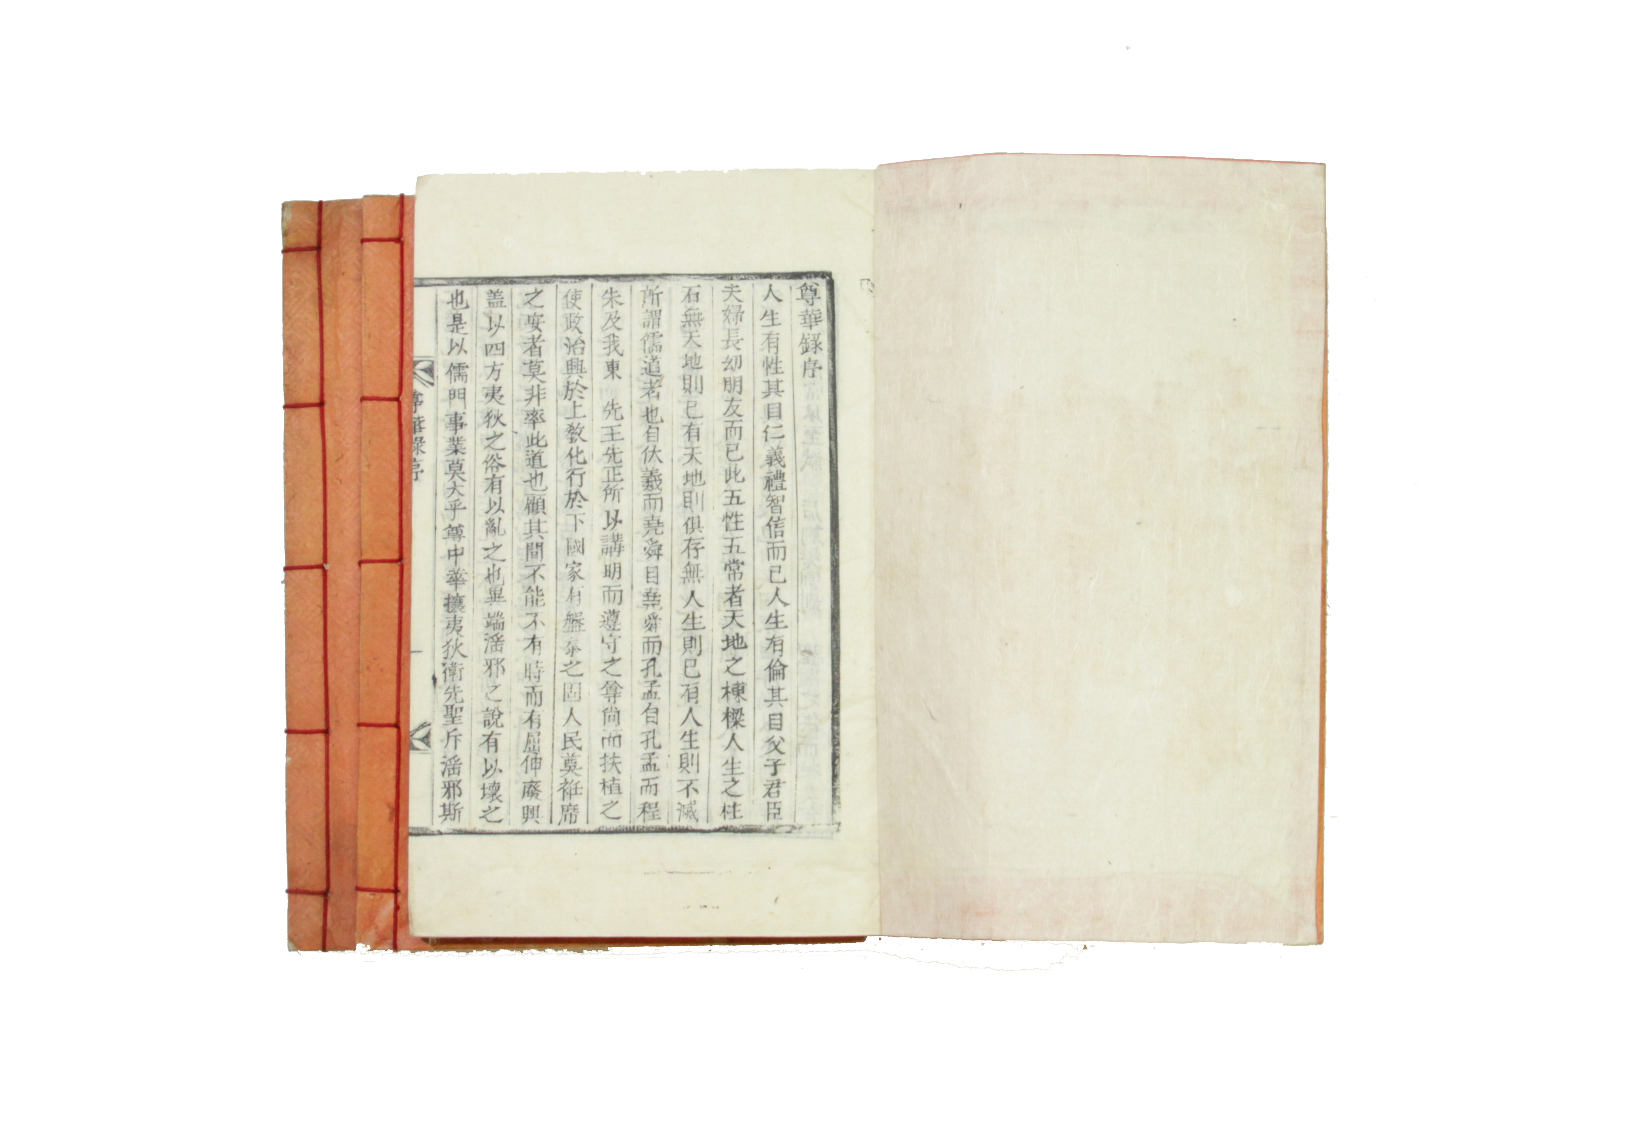 尊華錄序
人生有性其目仁義禮智信而已人生有倫其目父子君臣
夫婦長幼朋友而已此五性五常者天地之棟樑人生之柱
石無天地則已有天地則俱存無人生則已有人生則不滅
所謂儒道者也自伏羲而堯舜自堯舜而孔孟自孔孟而程
朱及我東 先王先正所以講明而遵守之尊尚而扶植之
使政治興於上敎化行於下國家有盤泰之固人民奠袵席
之安者莫非率此道也顧其間不能不有時而有屈伸廢興
盖以四方夷狄之俗有以亂之也異端滛邪之說有以壞之
也是以儒門事業莫大乎尊中華攘夷狄衛先聖斥滛邪斯
尊華錄序